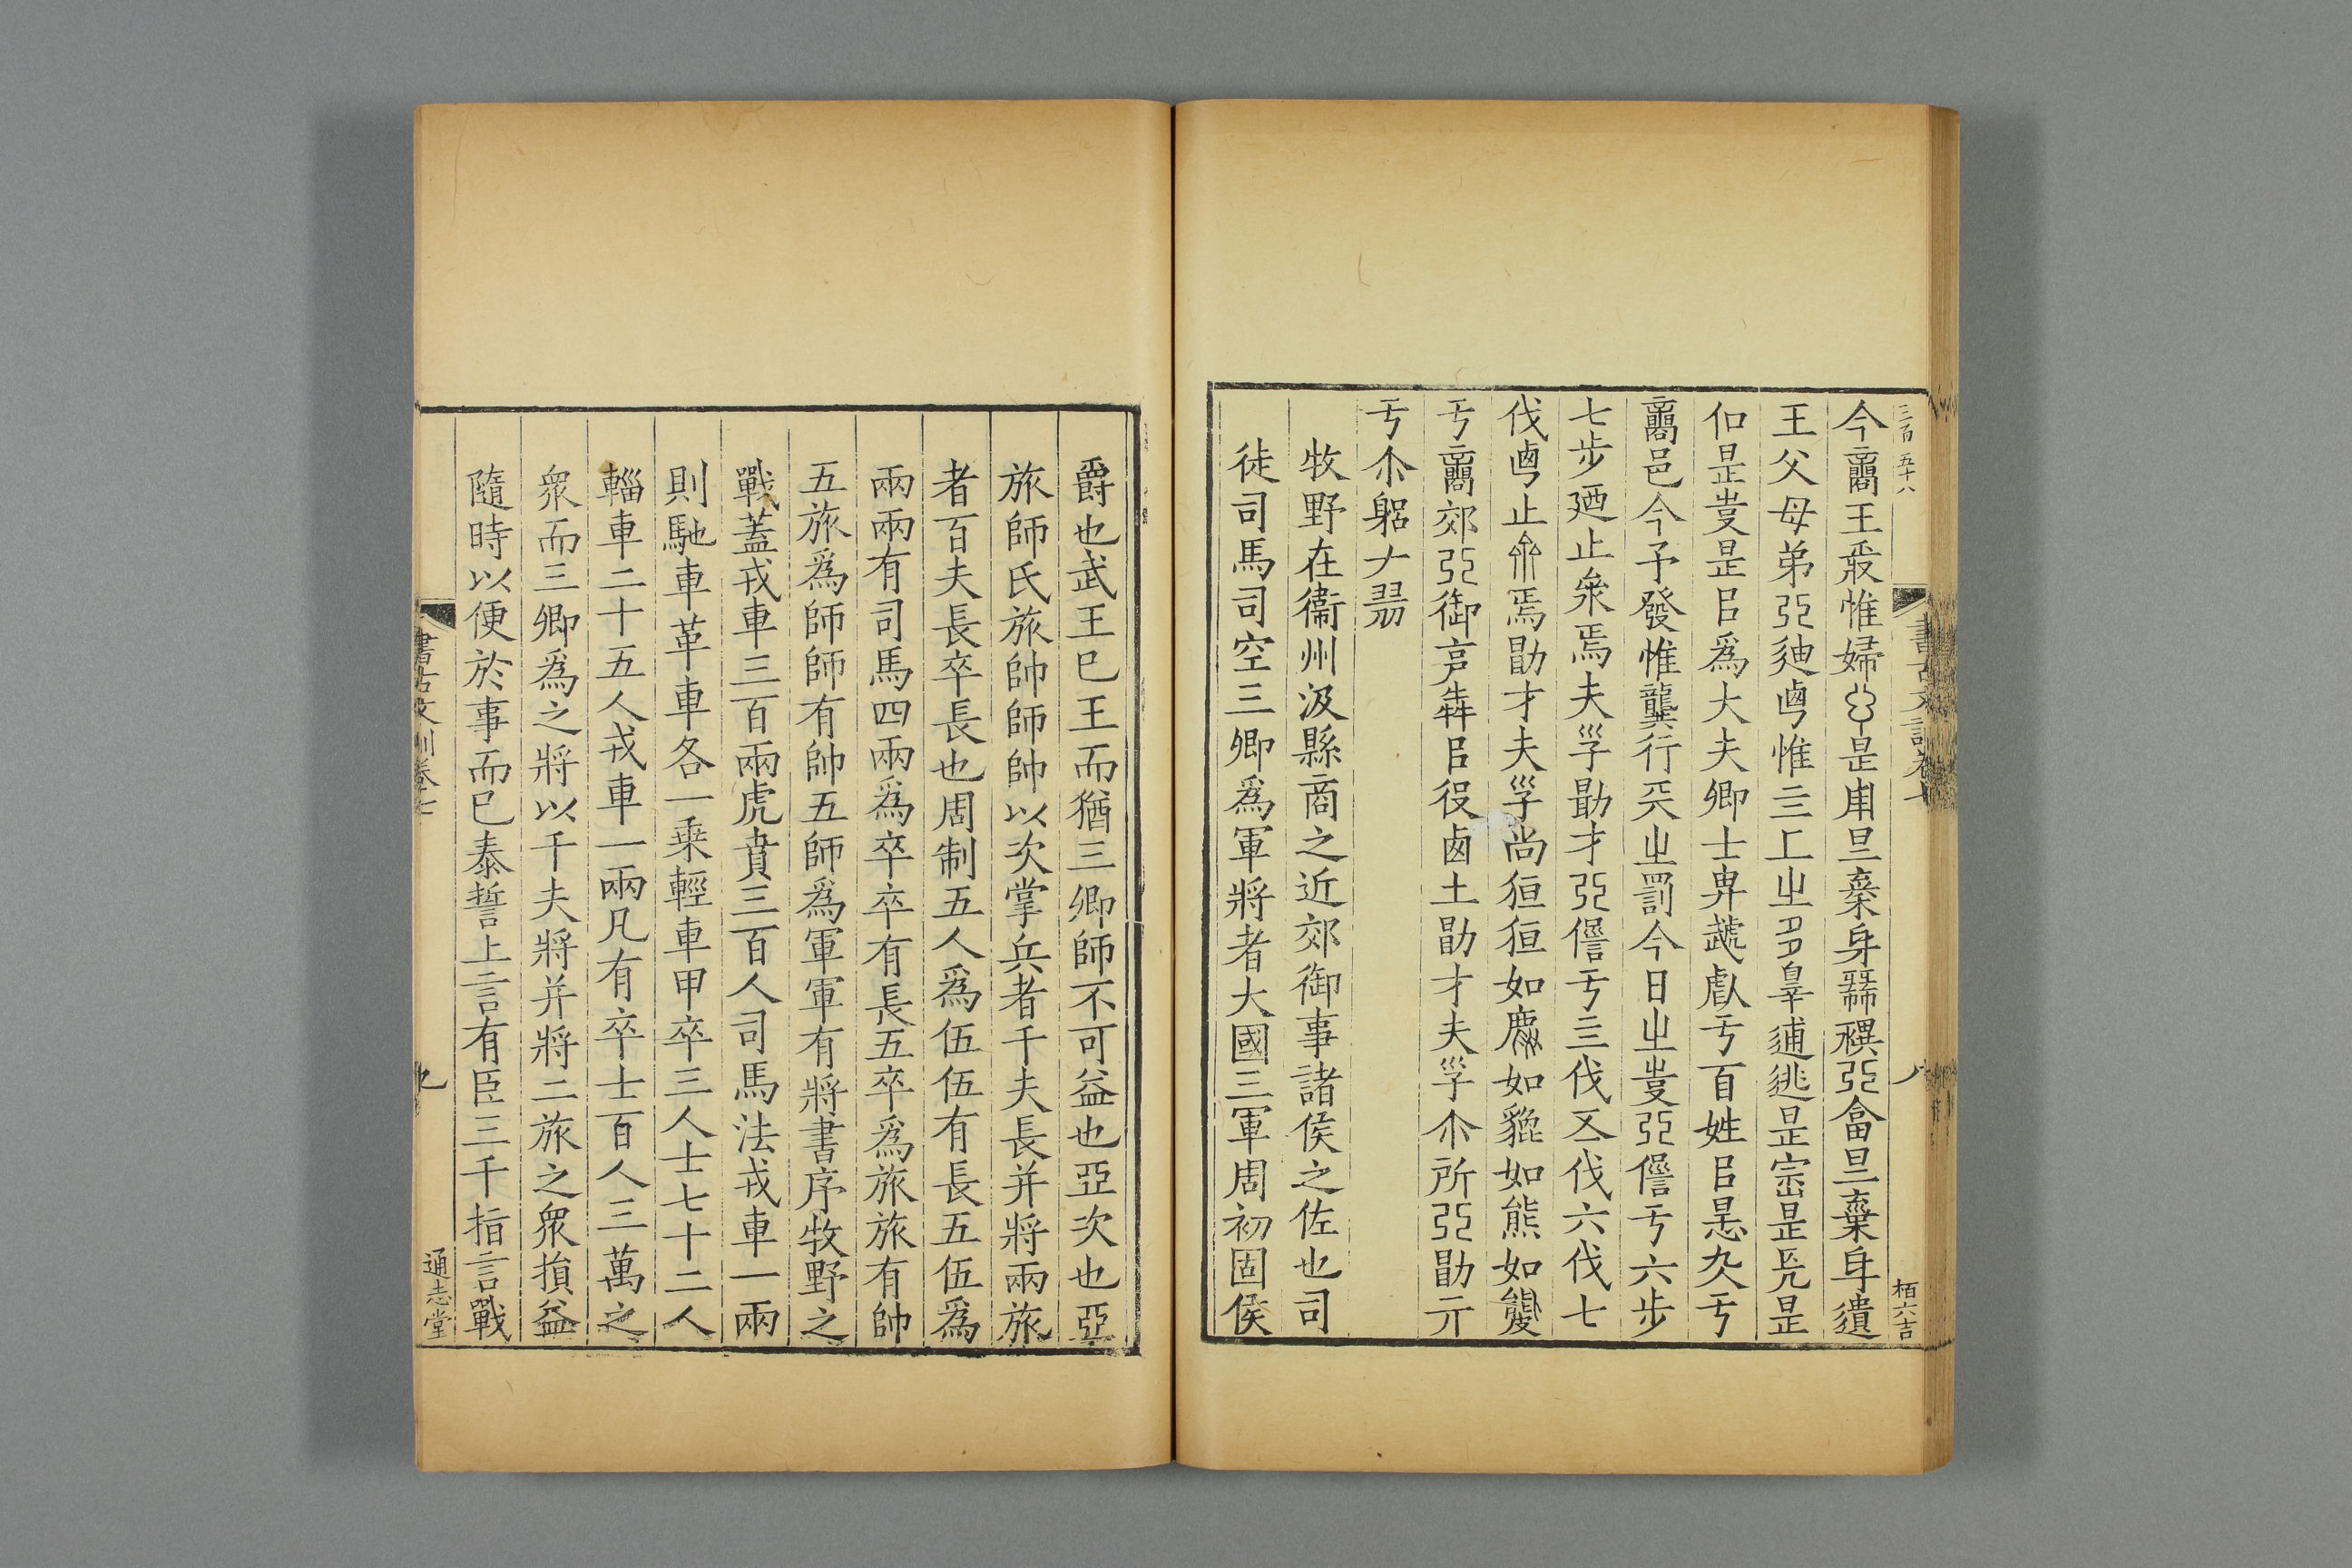 三百五十八
書古文訓卷七
八
栢六吉
今𠾃王𤕤惟婦是用㠯棄身𥜹亞畣㠯棄身遺
王父母弟亞迪𠧟惟亖丄㞢多辠逋逃是宗是是
㐰是㕜是㠯爲大夫卿士𢌿虣于百姓㠯是于
𠾃邑今予發惟龔行㞢罰今日㞢㕜亞𠎝于六步
七步𢌞止𠂤焉夫孚勖才亞𠎝于亖伐𠄡伐六伐七
伐𠧟止焉勖才夫孚尚狟狟如如貔如熊如
于𠾃郊亞御㠯役土勖才夫孚尒所亞勖亓
于尒躳ナ翏
牧野在衞州汲縣商之近郊御事諸侯之佐也司
徒司馬司空三卿爲軍將者大國三軍周初固侯
爵也武王已王而猶三卿師不可益也亞次也亞
旅師氏旅帥師帥以次掌兵者千夫長并將兩旅
者百夫長卒長也周制五人爲伍伍有長五伍爲
兩兩有司馬四兩爲卒卒有長五卒爲旅旅有帥
五旅爲師師有帥五師爲軍軍有將書序牧野之
戰蓋戎車三百兩虎賁三百人司馬法戎車一兩
則馳車革車各一乗輕車甲卒三人士七十二人
輜車二十五人戎車一兩凡有卒士百人三萬之
衆而三卿爲之將以千夫將并將二旅之衆損益
隨時以便於事而已泰誓上言有臣三千指言戰
書古文訓卷七
九
通志堂